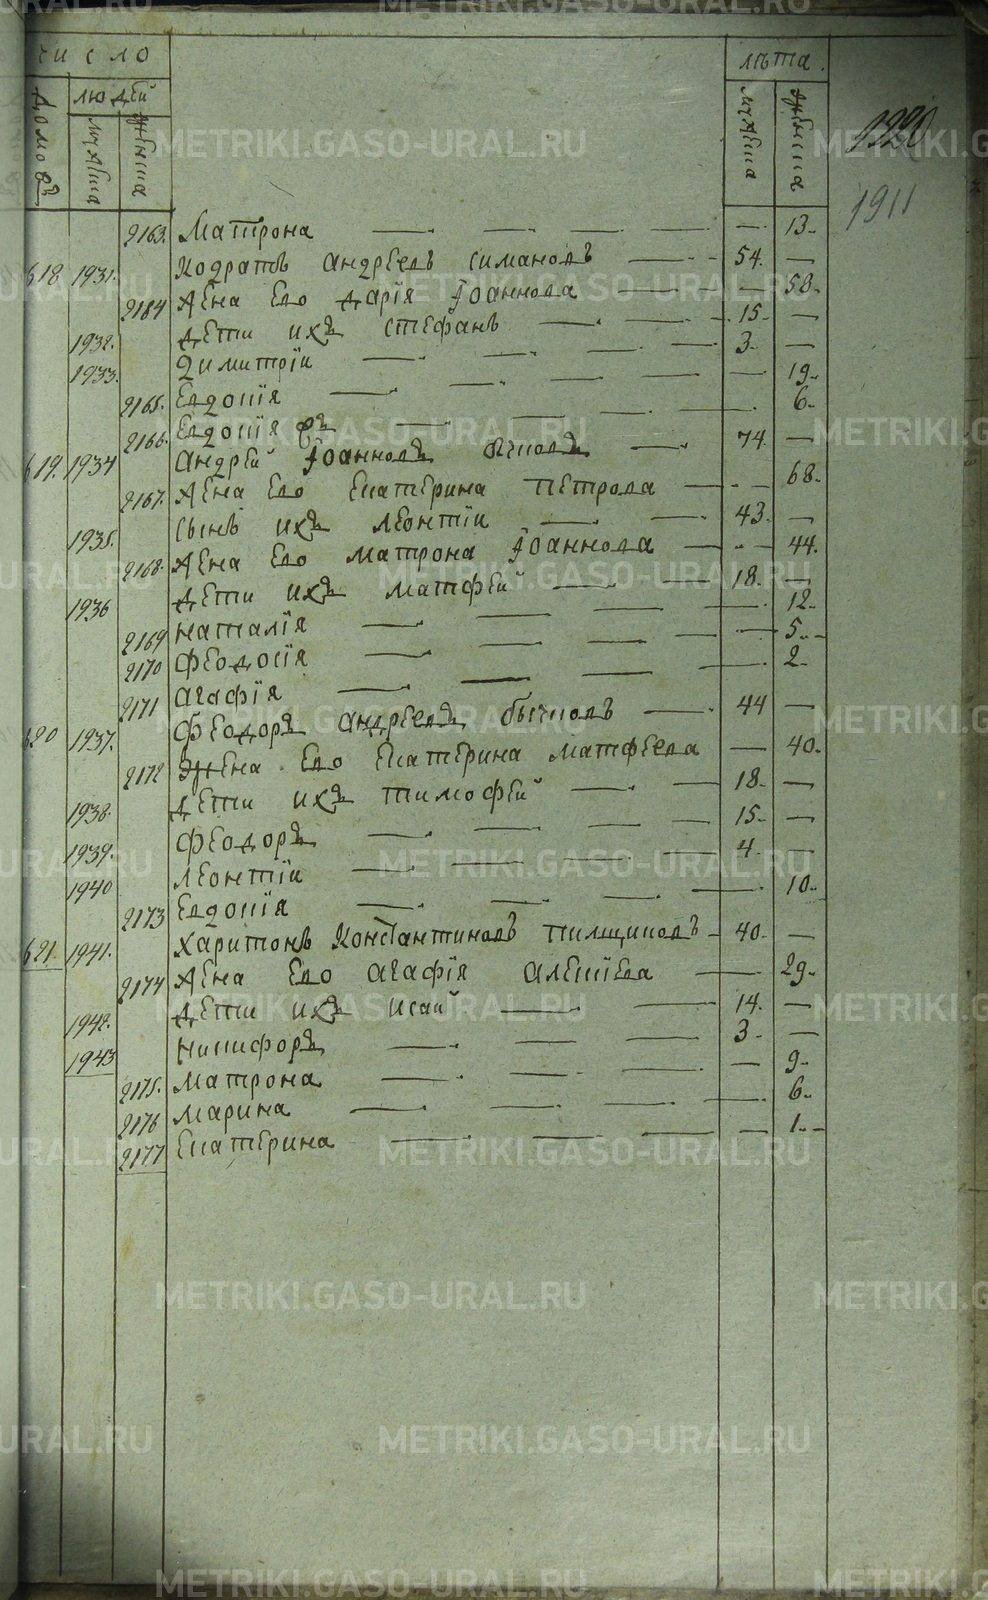 число
лѣта.
домовъ
людей
мужеска
женска
мужеска
женска
1320
1911
2163. Матрона — 13.
618 1931. Кодратъ Андреевъ Симановъ 54. —
2164 Жена Ево Дарїя Іоаннова — 50.
1932. Дети ихъ Стефанъ 15. —
1933. Димитрїи 3. —
2165. Евдокїя — 19.
2166. Евдокїя в҃ — 6.
619. 1934 Андрей Іоанновъ Бычковъ 74. —
2167. Жена Ево Екатерина Петрова — 68.
1935. Сынъ ихъ Леонтїи 43. —
2168. Жена Ево Матрона Іоаннова — 44.
1936 Дети ихъ Матфей 18. —
2169 Наталїя — 12.
2170 Феодосїя — 5.
2171 Агафїя — 2.
620 1937. Феодоръ Андреевъ Бычковъ 44 —
2172 Жена Ево Екатерина Матфеева — 40.
1938. Дети ихъ Тимофей 18. —
1939. Феодоръ 15. —
1940 Леонтїи 4. —
2173 Евдокїя — 10.
621. 1941. Харитонъ Константиновъ Пилщиковъ 40. —
2174 Жена Ево Агафїя Алексїева — 29.
1942. Дети ихъ Исай 14. —
1943 Никифоръ 3. —
2175. Матрона — 9.
2176 Марина — 6.
2177 Екатерина — 1.
METRIKI.GASO-URAL.RU